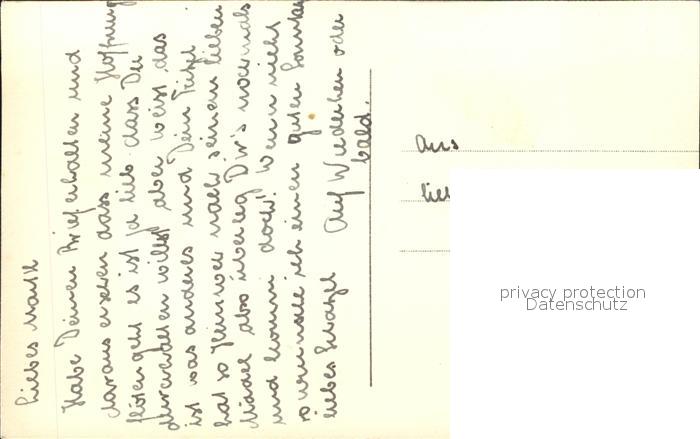 Liebes
Habe Deinen Brief erhalten und
daraus ersehen dass meine Hoffnung
flöten geht es ist ja lieb dass Du
durchhalten willst aber weist das
ist was anderes und Dein
hat so Heimweh nach seinem lieben
Mädel also überleg Dir's nochmals
und komm doch! Wenn nicht
so wünsche ich einen guten Sonntag
liebes Schatzel Auf Wiedersehen oder
bald.
Aus
lieb
privacy protection
Datenschutz